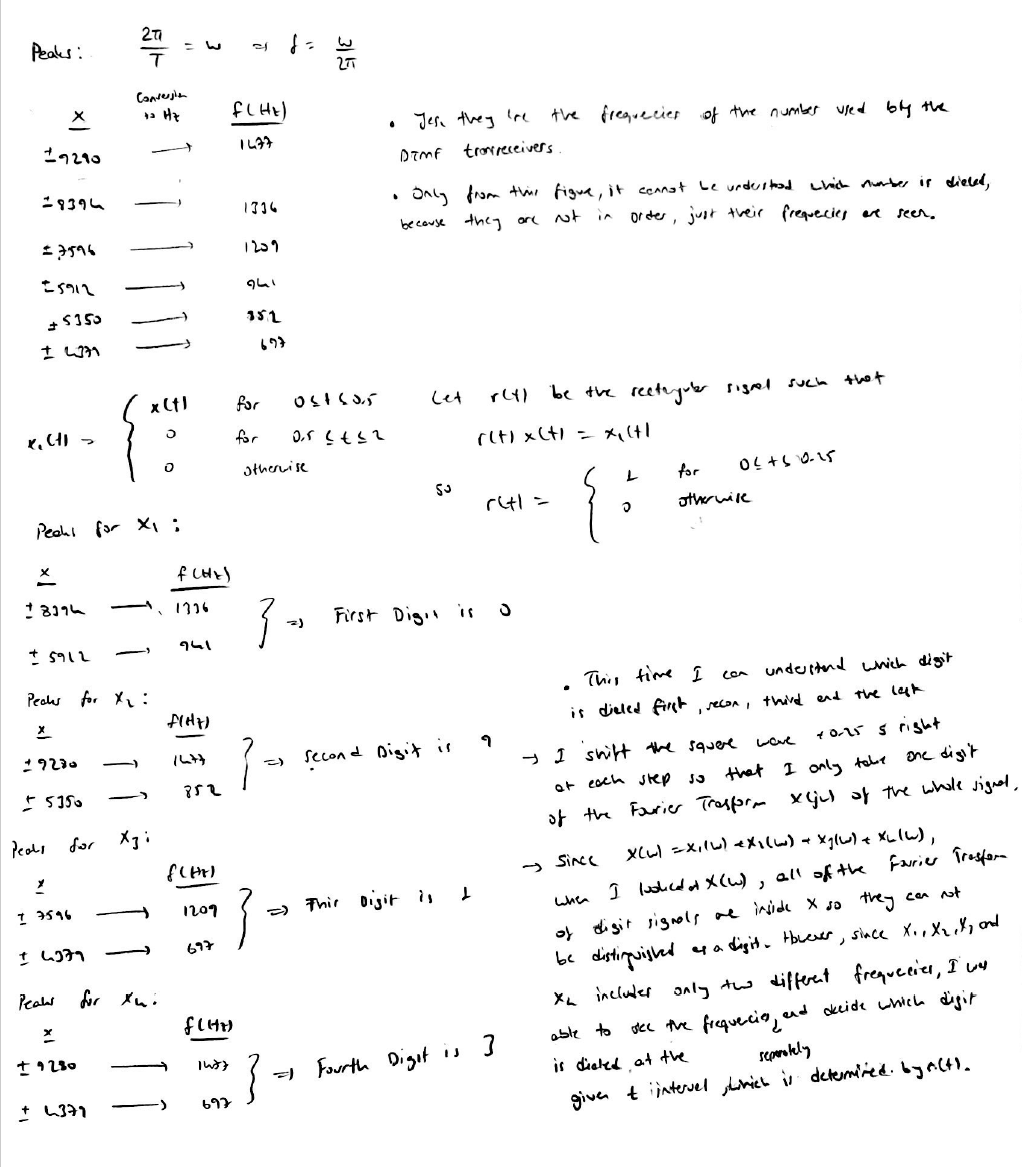 Peaks: 2π/T = w => f = w/2π
x Conversion to Hz f(Hz)
±9280 → 1477
±8394 → 1336
±7596 → 1209
±5912 → 941
±5350 → 852
±4379 → 697
• Yes, they are the frequecies of the number used by the
DTMF transreceivers.
• Only from this figue, it cannot be understood which number is dieled,
because they are not in order, just their frequecies are seen.
x₁(t) = { x(t) for 0≤t≤0,5
0 for 0,5≤t≤2
0 otherwise
Let r(t) be the rectagular signal such that
r(t) x(t) = x₁(t)
so r(t) = { 1 for 0≤t≤0.25
0 otherwise
Peaks for x₁:
x f(Hz)
±8394 → 1336
±5912 → 941
} => First Digit is 0
Peaks for x₂:
x f(Hz)
±9280 → 1477
±5350 → 852
} => second Digit is 9
Peaks for x₃:
x f(Hz)
±7596 → 1209
±4379 → 697
} => This Digit is 1
Peaks for x₄:
x f(Hz)
±9280 → 1477
±4379 → 697
} => Fourth Digit is 3
• This time I can understand which digit
is dieled first, secon, third and the last
→ I shift the square wave +0.25 s right
at each step so that I only take one digit
of the Fourier Trasform x(jw) of the whole signal.
→ Since X(w) = x₁(w) + x₂(w) + x₃(w) + x₄(w),
when I looked at X(w), all of the Fourier Trasform
of digit signals are inside X so they can not
be distinguished as a digit. However, since X₁, X₂, X₃ and
X₄ includes only two different frequecies, I was
able to see the frequecies, and decide which digit
is dieled at the seperately
given t iintervel, which is determined by r(t).